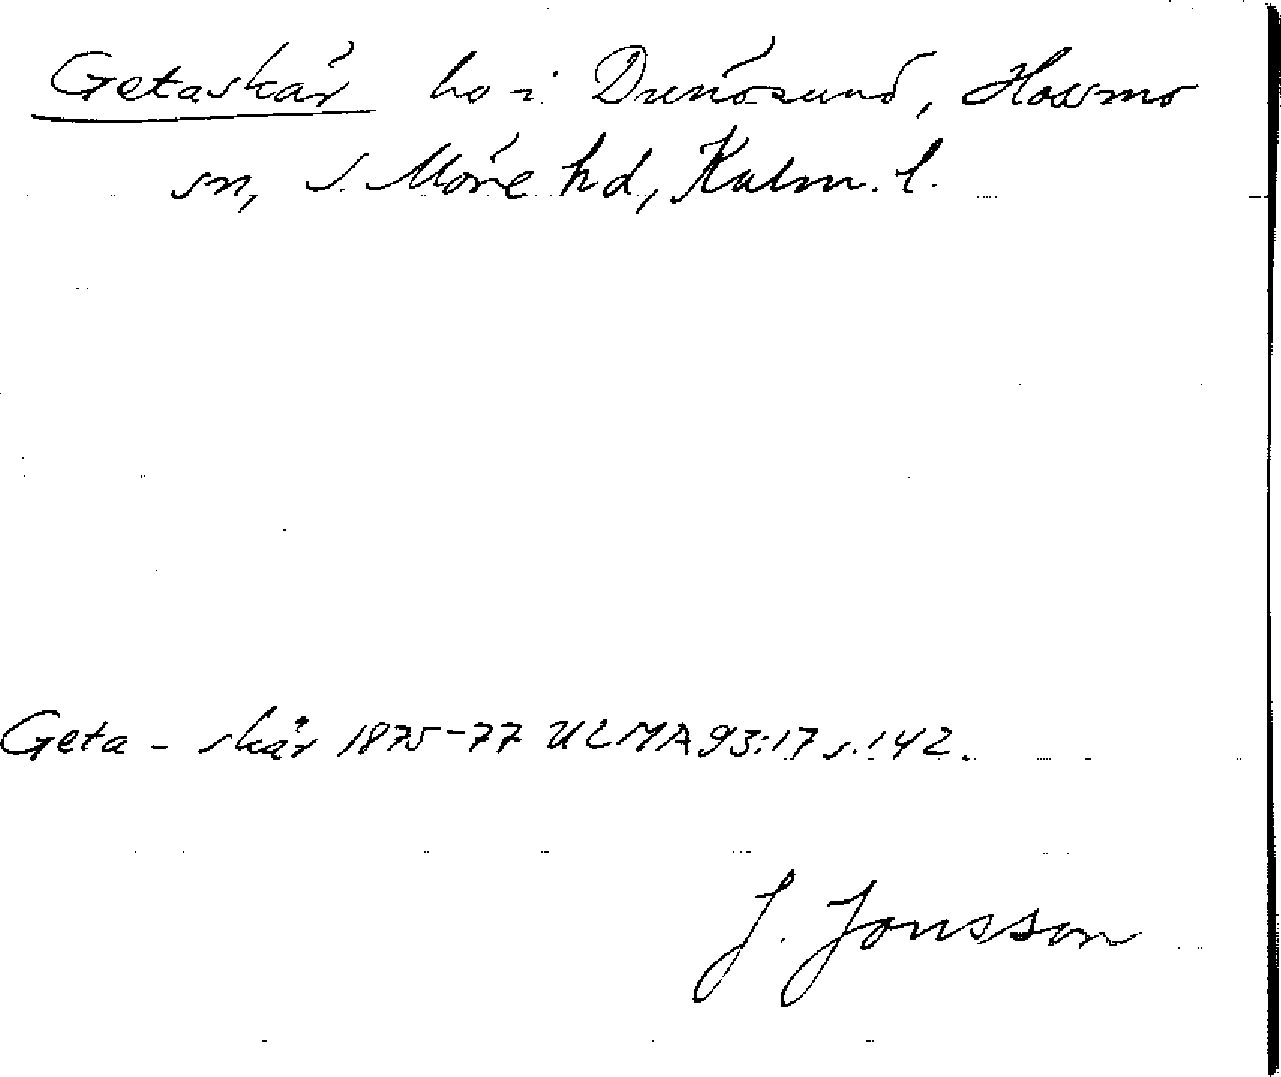 Getaskär ho i Drenösund, Hossmo
sn, S. Möre hd, Kalm. l.
Geta - skär 1875-77 ULMA 93:17 s. 142.
J. Jonsson